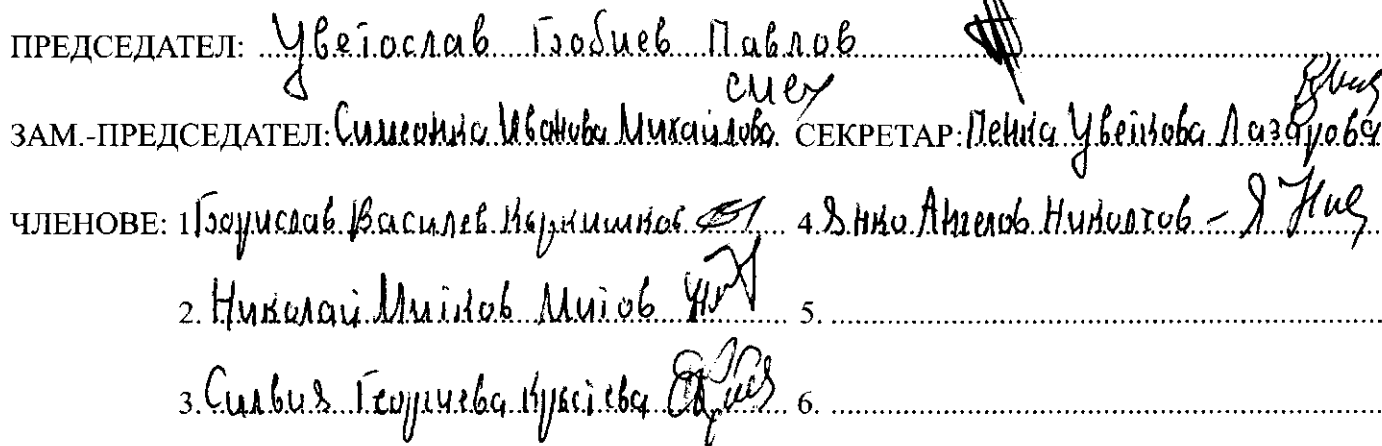 ПРЕДСЕДАТЕЛ: Цветослав Павлов
ЗАМ.-ПРЕДСЕДАТЕЛ: Симеонка Иванова Михайлова СЕКРЕТАР: Пенка Цветкова Лазарова
ЧЛЕНОВЕ: 1. Борислав Василев 4. Янко Ангелов Николов
2. Николай Митков Митов 5.
3. Силвия Георгиева Кръстева 6.